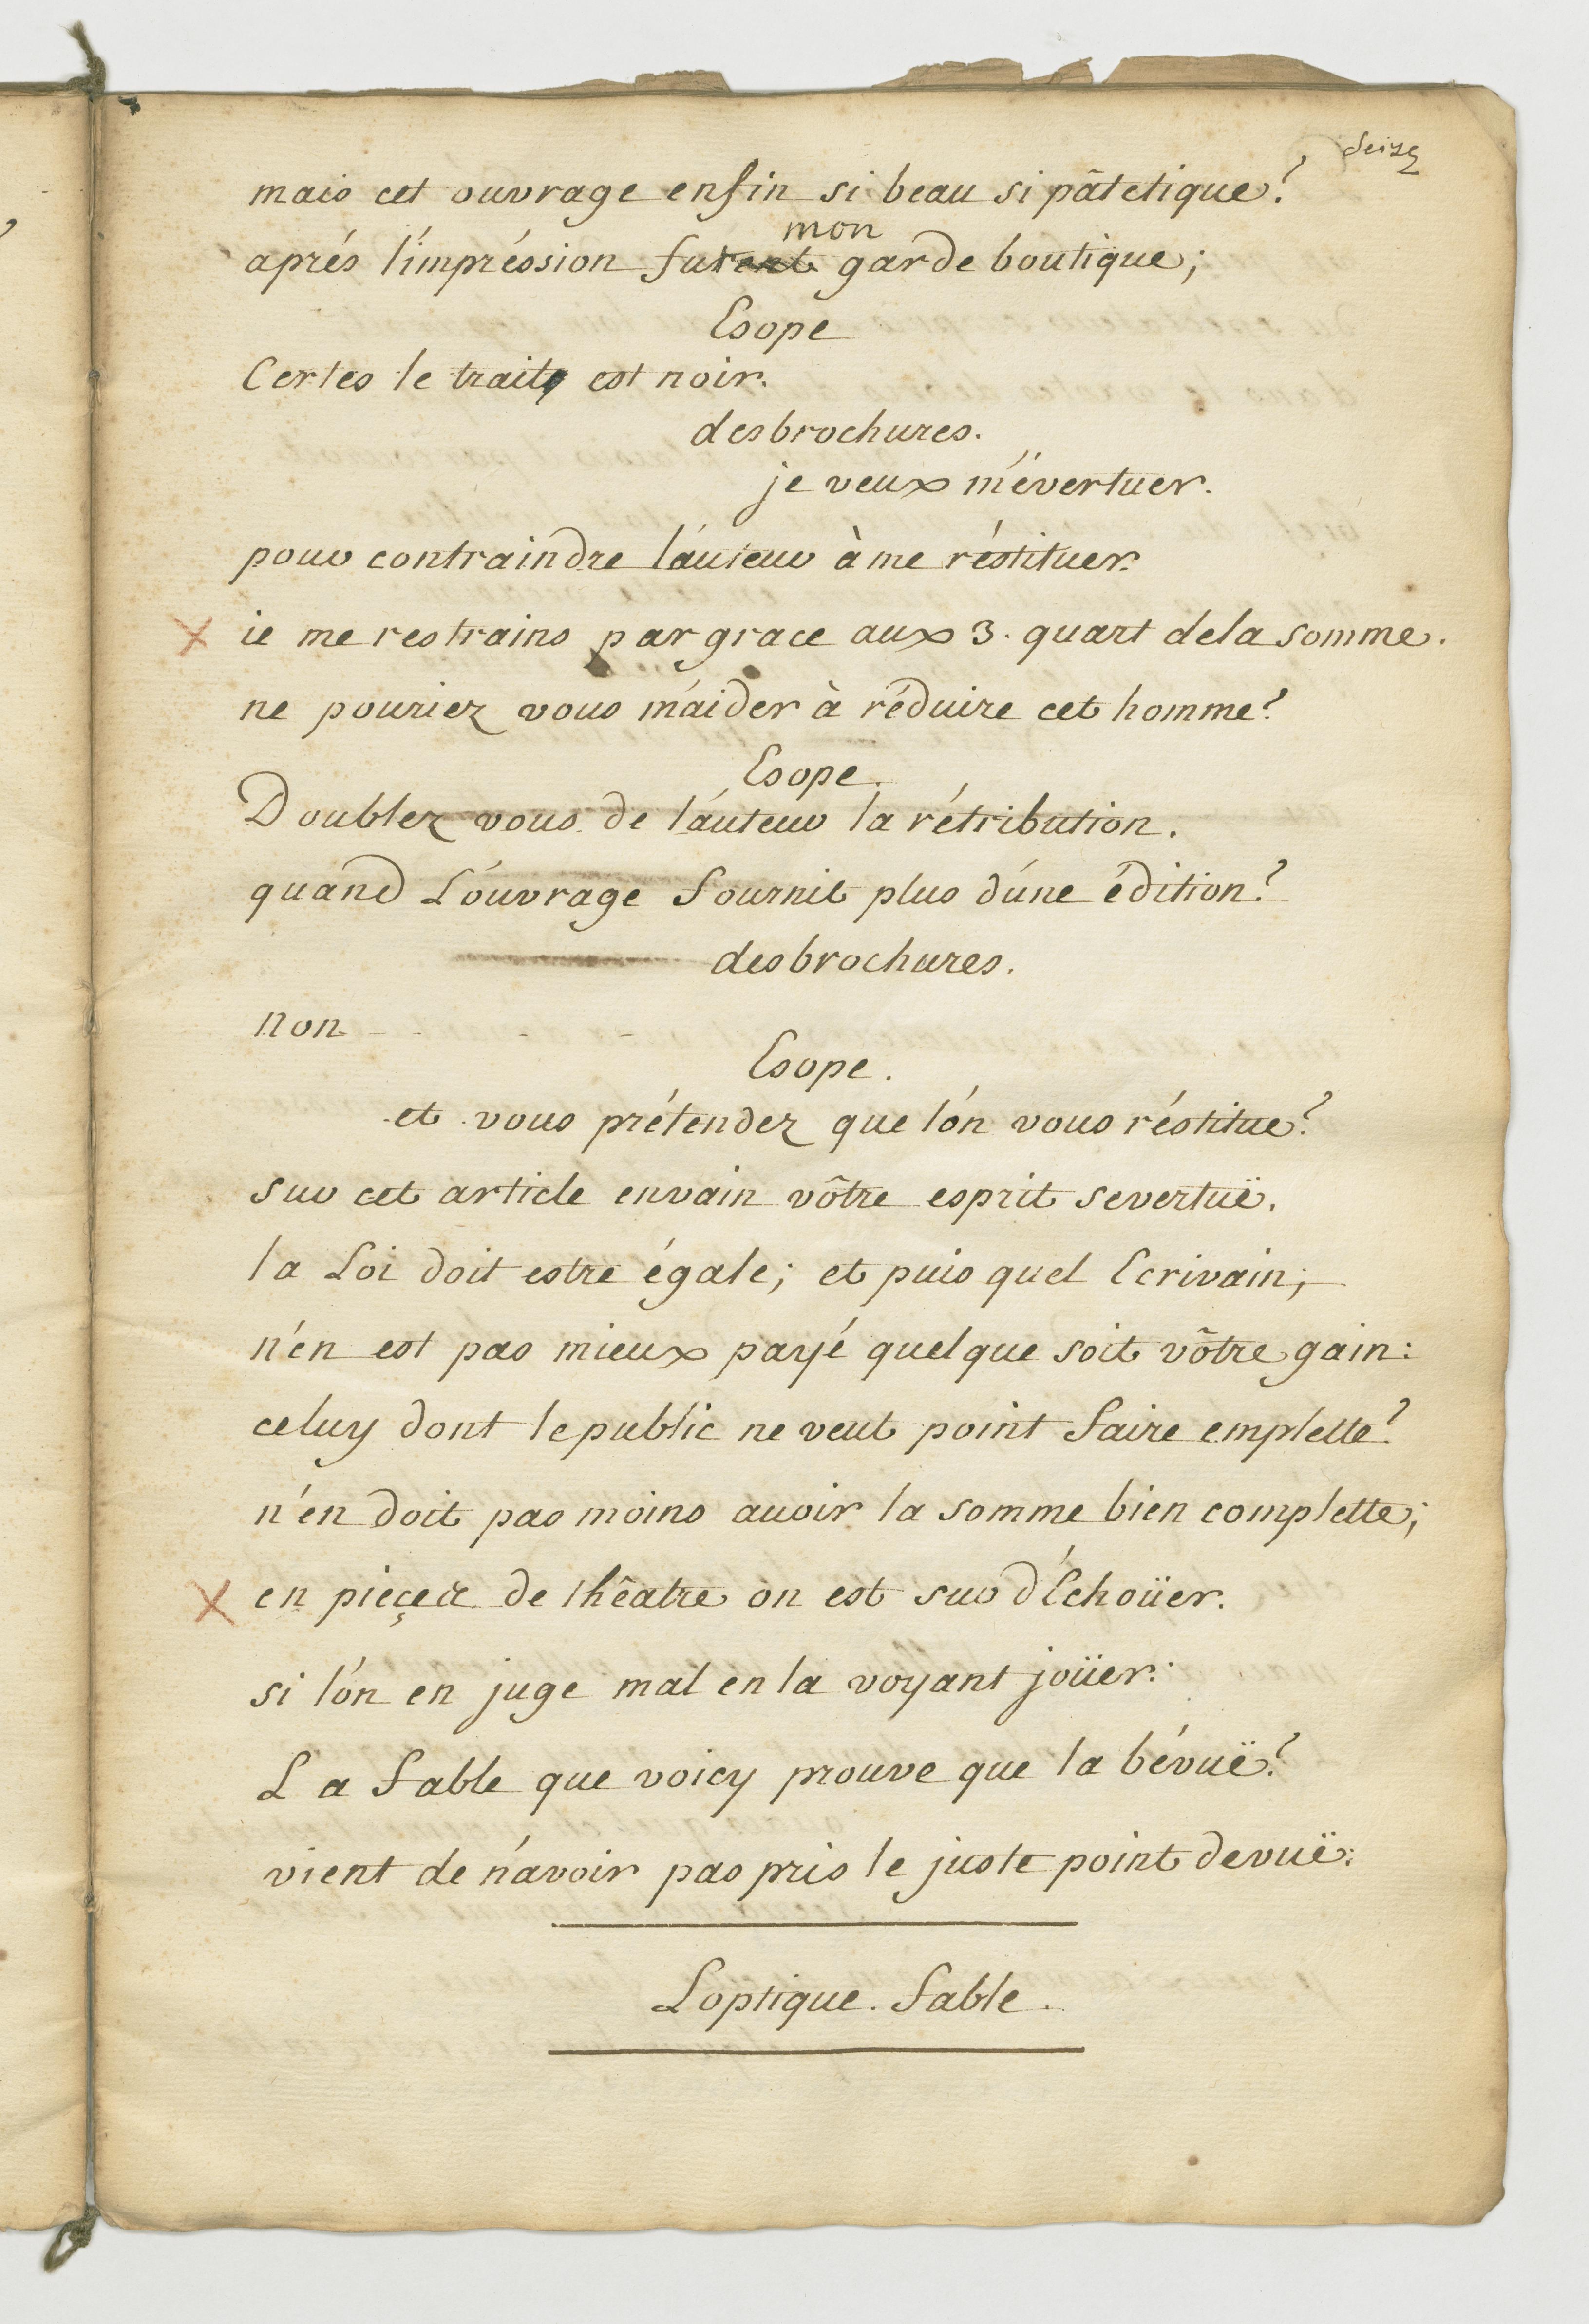 seize
mais cet ouvrage enfin si beau si pâtetique?
aprés l'impréssion fut mon garde boutique;
Esope
Certes le trait est noir.
desbrochures.
je veux m'évertuer.
pour contraindre l'auteur à me réstituer.
ie me restrains par grace aux 3. quart dela somme.
ne pouriez vous m'aider à réduire cet homme?
Esope.
Doublez vous de l'auteur la rétribution.
quand L'ouvrage fournit plus d'une édition?
desbrochures.
non
Esope.
et vous prétendez que l'on vous réstitue?
sur cet article envain vôtre esprit severtuë.
la Loi doit estre égale; et puis quel Ecrivain;
n'en est pas mieux payé quelque soit vôtre gain:
celuy dont le public ne veut point faire emplette?
n'en doit pas moins avoir la somme bien complette;
en de thêatre on est sur d'Echoüer.
si l'on en juge mal en la voyant joüer:
La fable que voicy prouve que la bévuë?
vient de n'avoir pas pris le juste point devuë:
Loptique. fable.